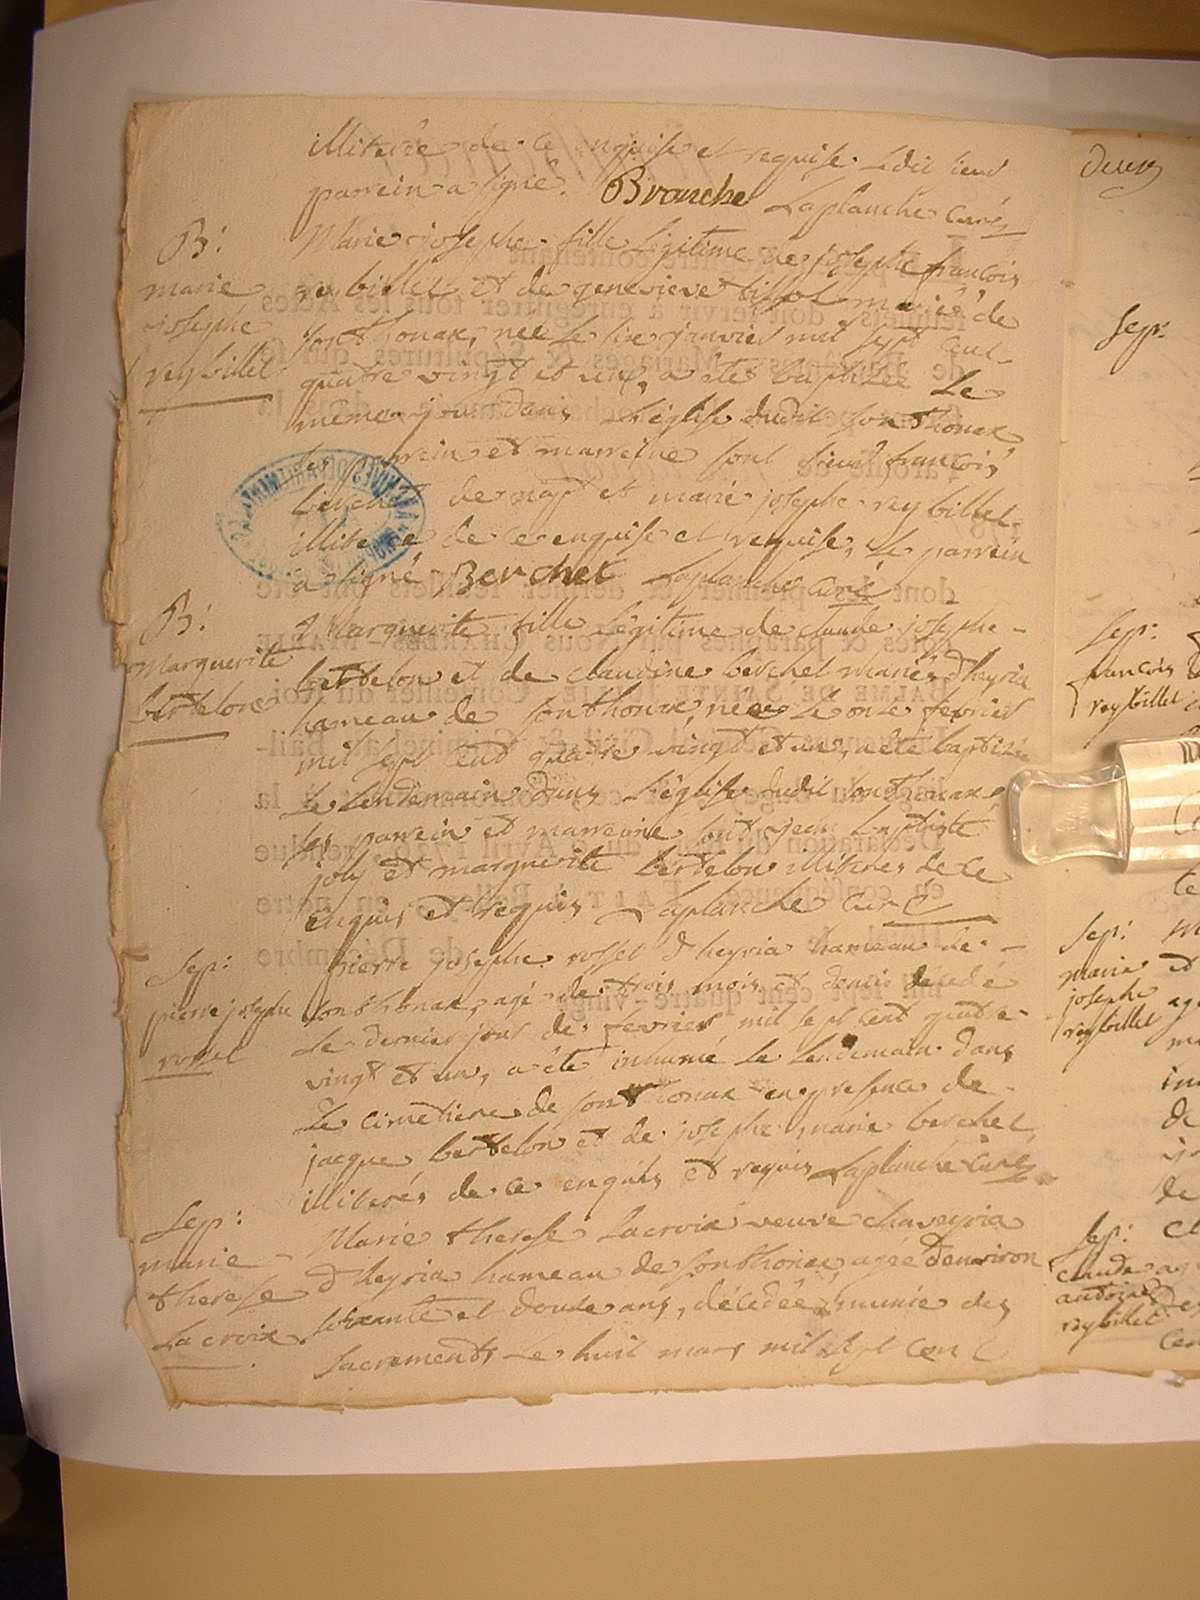 illiterée de ce enquise et requise. Ledit sieur
parrein a signé. Branche Laplanche curé
B:
marie
josephe
reybillet
Marie josephe fille légitime de josephe françois
reybillet et de genevieve tissot mariés de
sonthonax, née le six janvier mil sept cent
quatre vingt et un, a été baptisée Le
même jour dans L'église dudit sonthonax
les parrein et marreine sont sieur françois
berchet de et marie josephe reybillet
illiterée de ce enquise et requise, Le parrein
a signé Berchet Laplanche curé
B:
Marguerite
bertelon
Marguerite fille légitime de claude josephe
bertelon et de claudine berchet mariés d'heyria
hameau de sonthonax, née Le onze février
mil sept cent quatre vingt et un, a été baptisée
Le Lendemain dans L'église dudit sonthonax,
les parrein et marreine sont jean baptiste
joly et marguerite bertelon illiterés de ce
enquis et requis Laplanche curé
Sep:
pierre josephe
rosset
pierre josephe rosset d'heyria hameau de
sonthonax, agé de trois mois et demie décedé
Le dernier jour de février mil sept cent quatre
vingt et un, a été innumé Le Lendemain dans
Le cimetière de sonthonax en presence de
jacque bertelon et de josephe marie berchet
illiterés de ce enquis et requis Laplanche curé
Sep:
marie
therese
Lacroix
Marie therese Lacroix veuve chaveyria
d'heyria hameau de sonthonax agée d'environ
soixante et douze ans, décedée munie des
sacrements Le huit mars mil sept cent
deux
Sep:
Sep:
françois
reybillet
te
Sep:
marie
josephe
reybillet
M
et
ag
in
de
de
Sep:
claude
antoine
reybillet
ag